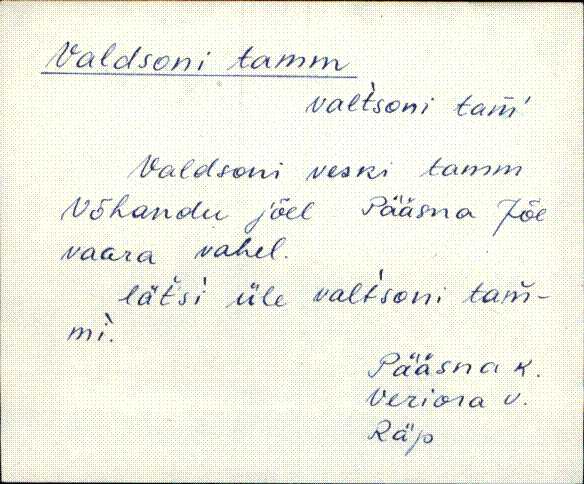 Valdsoni tamm
valt̀soni tam̄'
Valdsoni veski tamm
Võhandu jõel Pääsna Jõe
vaara vahel.
lät̀si üle valt̀soni tam̄-
mì.
Pääsna k.
Veriora v.
Räp